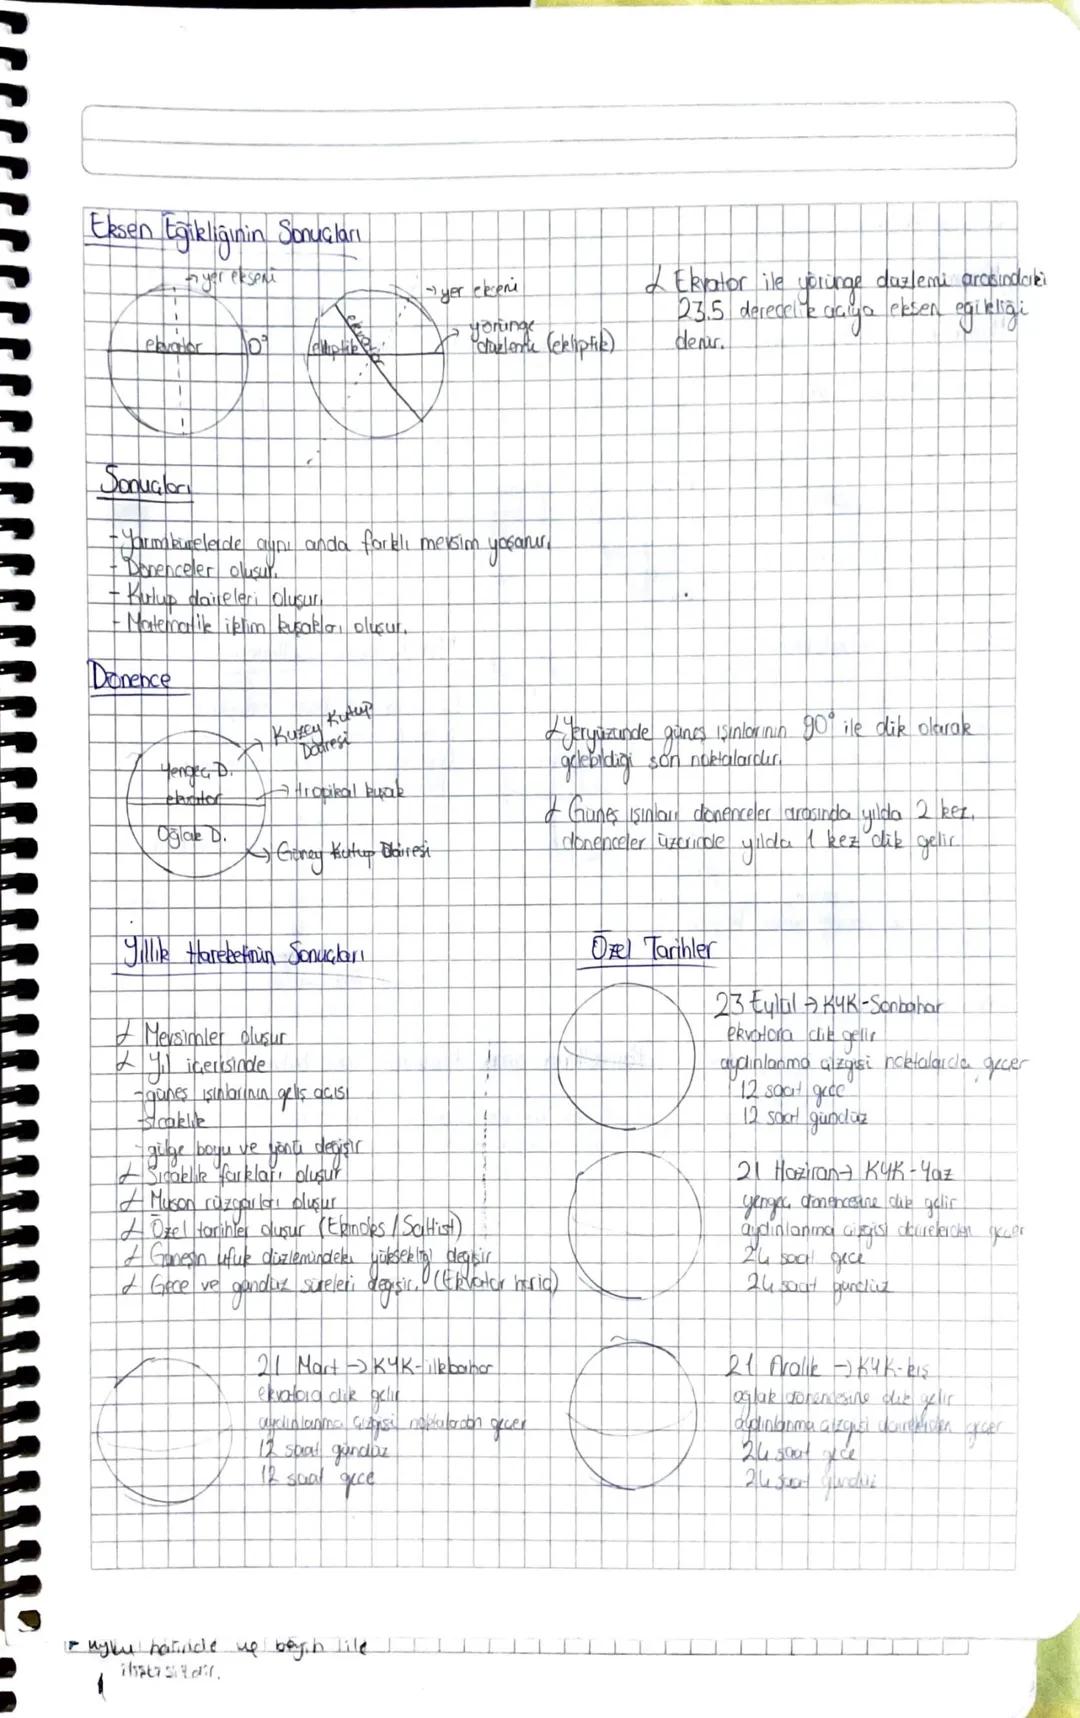 Eksen Eğikliğinin Sonuçları
yer ekseni
ekvator
0°
yer ekseni
ekvator
ekliptik
yörünge
düzlemi (ekliptik)
Ekvator ile yörünge düzlemi arasındaki
23.5 derecelik açıya eksen eğikliği
denir.
Sonuçları
- Yarımkürelerde aynı anda farklı mevsim yaşanır.
- Dönenceler oluşur.
- Kutup daireleri oluşur.
- Matematik iklim kuşakları oluşur.
Dönence
Kuzey Kutup
Dairesi
Yengeç D.
ekvator
Oğlak D.
Tropikal kuşak
Güney Kutup Dairesi
Yeryüzünde güneş ışınlarının 90° ile dik olarak
gelebildiği son noktalardır.
Güneş ışınları dönenceler arasında yılda 2 kez,
dönenceler üzerinde yılda 1 kez dik gelir.
Yıllık Hareketinin Sonuçları
Mevsimler oluşur
Yıl içerisinde
- güneş ışınlarının geliş açısı
- sıcaklık
- gölge boyu ve yönü değişir
Sıcaklık farkları oluşur
Muson rüzgarları oluşur
Özel tarihler oluşur (Ekinoks / Solstist)
Güneşin ufuk düzlemindeki yüksekliği değişir
Gece ve gündüz süreleri değişir. (Ekvator hariç)
Özel Tarihler
23 Eylül → KYK - Sonbahar
ekvatora dik gelir
aydınlanma çizgisi noktalarda geçer
12 saat gece
12 saat gündüz
21 Haziran → KYK - Yaz
yengeç dönencesine dik gelir
aydınlanma çizgisi dairelerden geçer
24 saat gece
24 saat gündüz
21 Mart → KYK - ilkbahar
ekvatora dik gelir
aydınlanma çizgisi noktalardan geçer
12 saat gündüz
12 saat gece
21 Aralık → KYK - kış
oğlak dönencesine dik gelir
aydınlanma çizgisi dairelerden geçer
24 saat gece
24 saat gündüz
uyku halinde ve beyin ile